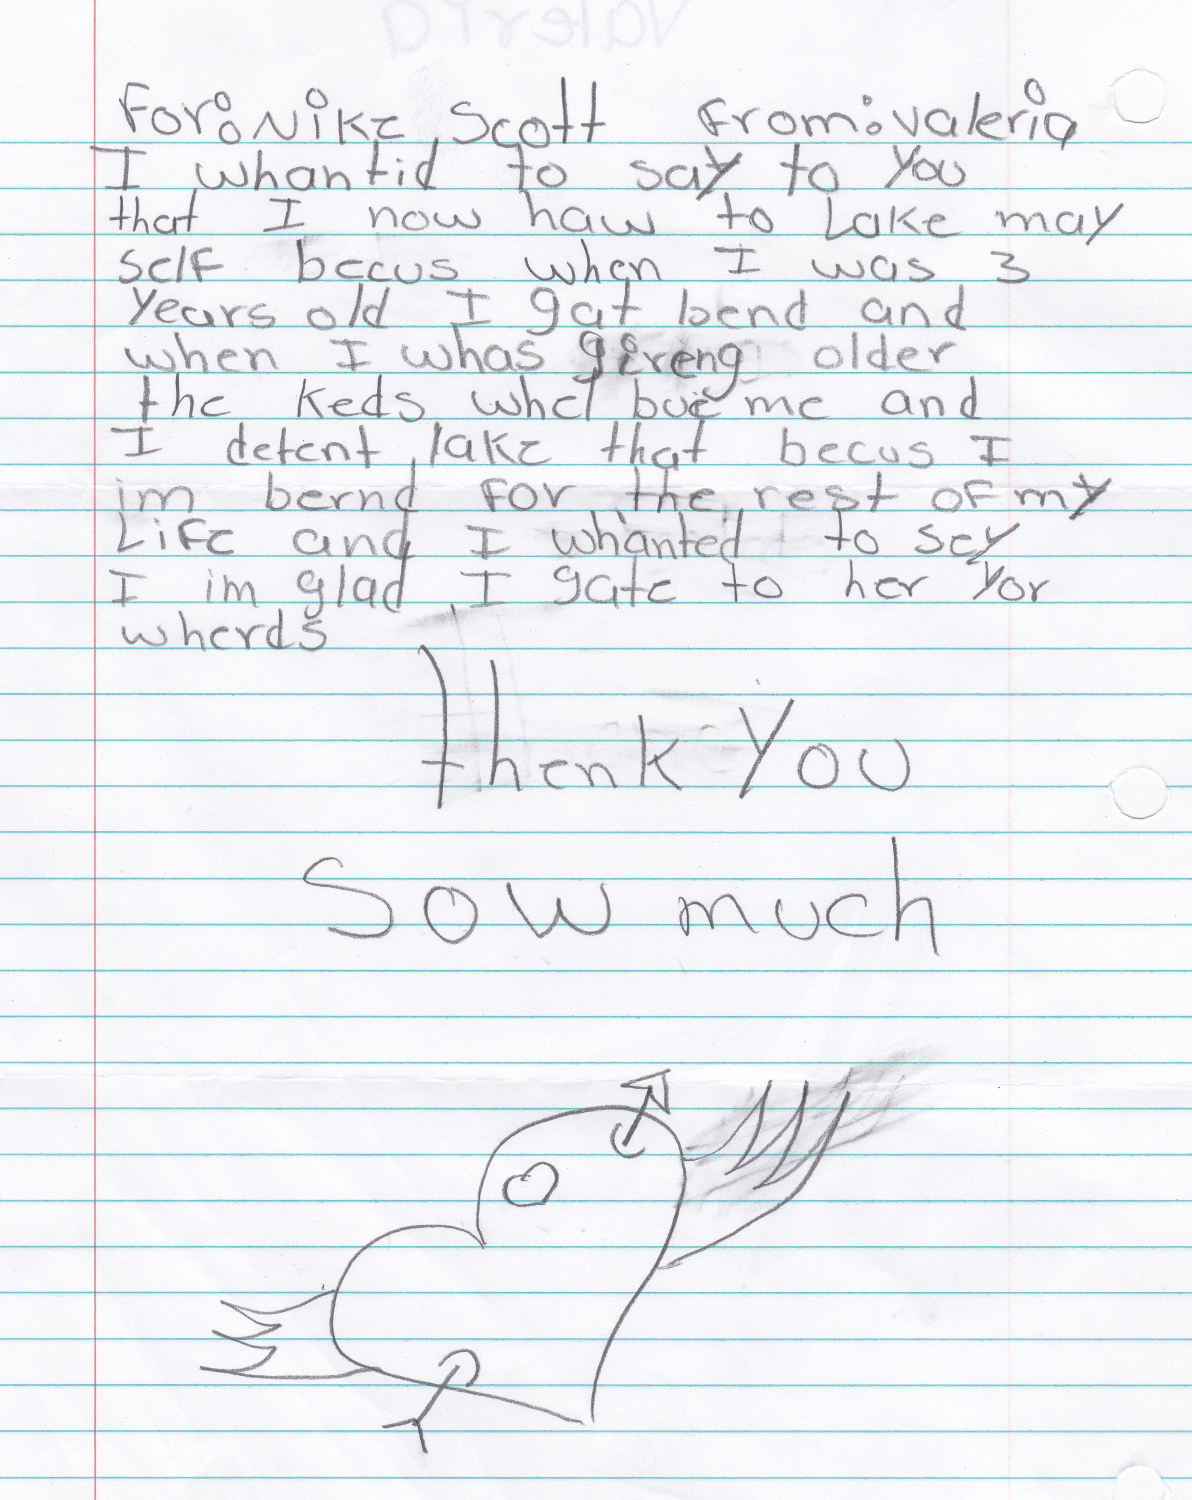 For: Nike Scott From: Valeria
I whantid to say to You
that I now haw to Lake may
self becus when I was 3
Years old I gat bend and
when I whas gireng older
the keds whel bue me and
I detent lake that becus I
im bernd for the rest of my
Life and I whanted to sey
I im glad I gate to her Yor
wherds
thenk You
Sow much